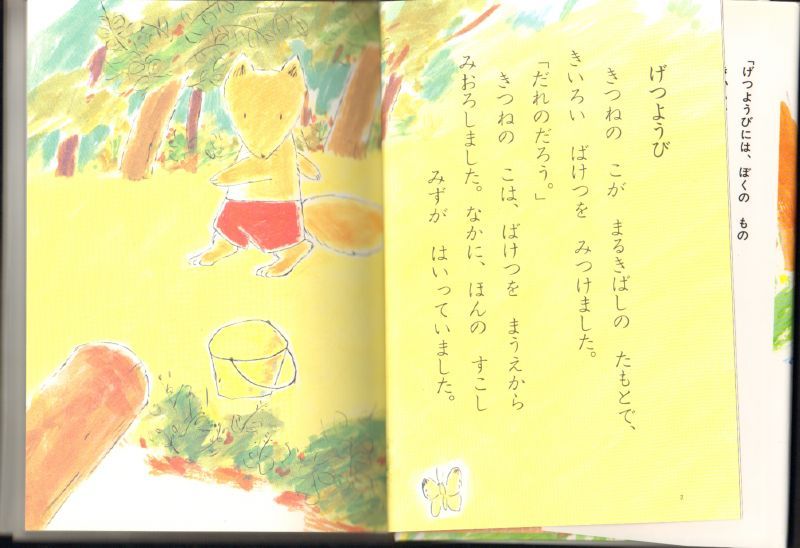 げつようび
きつねの　こが　まるきばしの　たもとで、
きいろい　ばけつを　みつけました。
「だれのだろう。」
きつねの　こは、ばけつを　まうえから
みおろしました。なかに、ほんの　すこし
みずが　はいっていました。
「げつようびには、ぼくの　もの